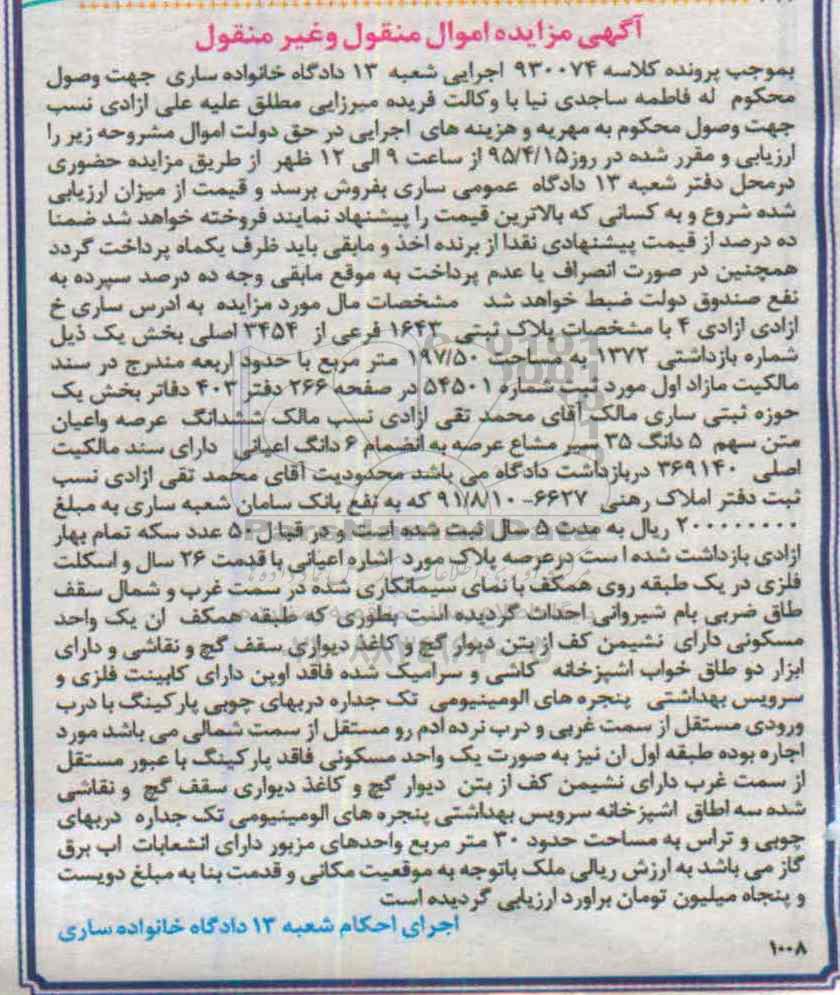 آگهی مزایده اموال منقول وغیر منقول
بموجب پرونده کلاسه ۹۳۰۰۷۴ اجرایی شعبه ۱۳ دادگاه خانواده ساری جهت وصول
محکوم له فاطمه ساجدی نیا با وکالت فریده میرزایی مطلق علیه علی ازادی نسب
جهت وصول محکوم به مهریه و هزینه های اجرایی در حق دولت اموال مشروحه زیر را
ارزیابی و مقرر شده در روز ۹۵/۴/۱۵ از ساعت ۹ الی ۱۲ ظهر از طریق مزایده حضوری
درمحل دفتر شعبه ۱۳ دادگاه عمومی ساری بفروش برسد و قیمت از میزان ارزیابی
شده شروع و به کسانی که بالاترین قیمت را پیشنهاد نمایند فروخته خواهد شد ضمنا
ده درصد از قیمت پیشنهادی نقدا از برنده اخذ و مابقی باید ظرف یکماه پرداخت گردد
همچنین در صورت انصراف یا عدم پرداخت به موقع مابقی وجه ده درصد سپرده به
نفع صندوق دولت ضبط خواهد شد مشخصات مال مورد مزایده به ادرس ساری خ
ازادی ازادی ۴ با مشخصات پلاک ثبتی ۱۶۴۳ فرعی از ۳۴۵۴ اصلی بخش یک ذیل
شماره بازداشتی ۱۳۷۲ به مساحت ۱۹۷/۵۰ متر مربع با حدود اربعه مندرج در سند
مالکیت مازاد اول مورد ثبت شماره ۵۴۵۰۱ در صفحه ۲۶۶ دفتر ۴۰۳ دفاتر بخش یک
حوزه ثبتی ساری مالک آقای محمد تقی ازادی نسب مالک ششدانگ عرصه واعیان
متن سهم ۵ دانگ ۳۵ سیر مشاع عرصه به انضمام ۶ دانگ اعیانی دارای سند مالکیت
اصلی ۳۶۹۱۴۰ دربازداشت دادگاه می باشد محدودیت آقای محمد تقی ازادی نسب
ثبت دفتر املاک رهنی ۶۶۲۷-۹۱/۸/۱۰ که به نفع بانک سامان شعبه ساری به مبلغ
۲۰۰۰۰۰۰۰۰ ریال به مدت ۵ سال ثبت شده است و در قبال ۵۰ عدد سکه تمام بهار
ازادی بازداشت شده است درعرصه پلاک مورد اشاره اعیانی با قدمت ۲۶ سال و اسکلت
فلزی در یک طبقه روی همکف با نمای سیمانکاری شده در سمت غرب و شمال سقف
طاق ضربی بام شیروانی احداث گردیده است بطوری که طبقه همکف ان یک واحد
مسکونی دارای نشیمن کف از بتن دیوار گچ و کاغذ دیواری سقف گچ و نقاشی و دارای
ابزار دو طاق خواب اشپزخانه کاشی و سرامیک شده فاقد اوپن دارای کابینت فلزی و
سرویس بهداشتی پنجره های الومینیومی تک جداره دربهای چوبی پارکینگ با درب
ورودی مستقل از سمت غربی و درب نرده ادم رو مستقل از سمت شمالی می باشد مورد
اجاره بوده طبقه اول ان نیز به صورت یک واحد مسکونی فاقد پارکینگ با عبور مستقل
از سمت غرب دارای نشیمن کف از بتن دیوار گچ و کاغذ دیواری سقف گچ و نقاشی
شده سه اطاق اشپزخانه سرویس بهداشتی پنجره های الومینیومی تک جداره دربهای
چوبی و تراس به مساحت حدود ۳۰ متر مربع واحدهای مزبور دارای انشعابات اب برق
گاز می باشد به ارزش ریالی ملک باتوجه به موقعیت مکانی و قدمت بنا به مبلغ دویست
و پنجاه میلیون تومان براورد ارزیابی گردیده است
اجرای احکام شعبه ۱۳ دادگاه خانواده ساری
۱۰۰۸